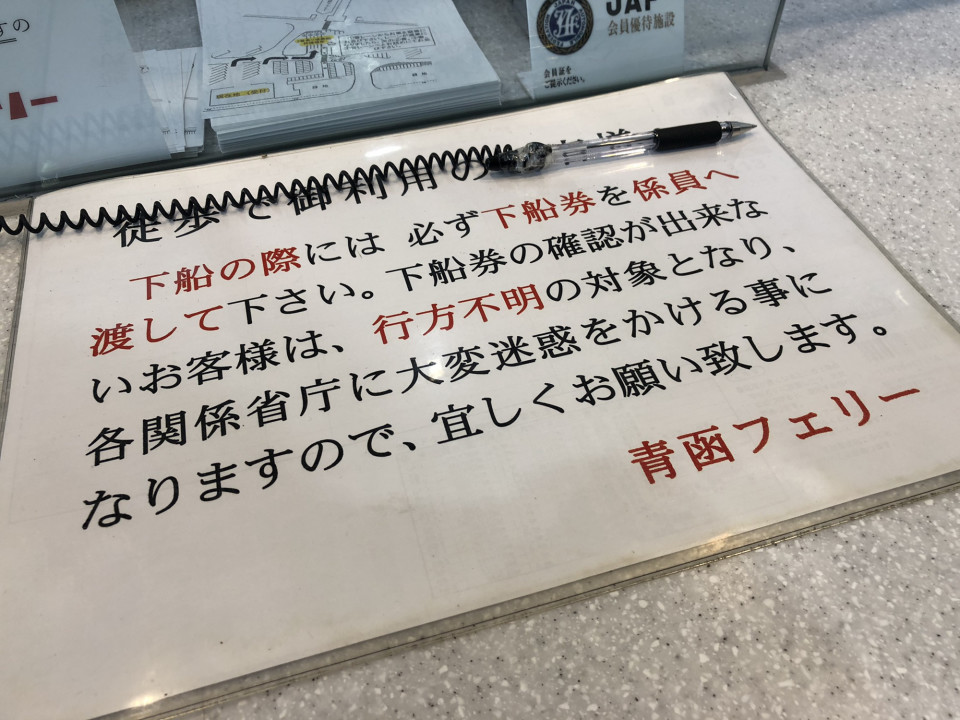 すの
リー
JAF
会員優待施設
会員証を
ご提示ください。
徒歩で御利用の
下船の際には 必ず下船券を係員へ
渡して下さい。下船券の確認が出来な
いお客様は、行方不明の対象となり、
各関係省庁に大変迷惑をかける事に
なりますので、宜しくお願い致します。
青函フェリー